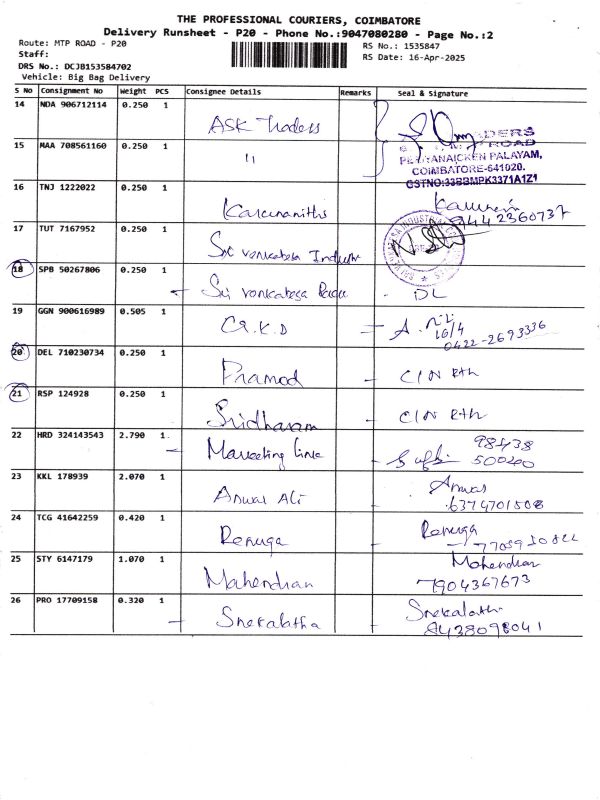 THE PROFESSIONAL COURIERS, COIMBATORE
Delivery Runsheet - P20 - Phone No.:9047080280 - Page No.:2
Route: MTP ROAD - P20
RS No.: 1535847
Staff:
RS Date: 16-Apr-2025
DRS No.: DCJB153584702
Vehicle: Big Bag Delivery
S No Consignment No Weight PCS Consignee Details Remarks Seal & Signature
14 NDA 906712114 0.250 1
ASK Traders
15 MAA 708561160 0.250 1
"
DERS
ROAD
NAICKEN PALAYAM,
COIMBATORE-641020.
GSTNO:33BBMPK3371A1Z1
16 TNJ 1222022 0.250 1
Karunanithi
9442360737
17 TUT 7167952 0.250 1
Sri venkatesa
18 SPB 50267806 0.250 1
Sri venkatesa
DL
19 GGN 900616989 0.505 1
G.K.D
16/4
0422-2693336
20 DEL 710230734 0.250 1
Pramod
C/N Rth
21 RSP 124928 0.250 1
Sridharan
C/N Rth
22 HRD 324143543 2.790 1
Marketing
98438
500400
23 KKL 178939 2.070 1
Anwar Ali
Anwar
6374701508
24 TCG 41642259 0.420 1
Renuga
Renuga
25 STY 6147179 1.070 1
Mahendran
Mahendran
7904367673
26 PRO 17709158 0.320 1
Snekalatha
Snekalatha
8438098041